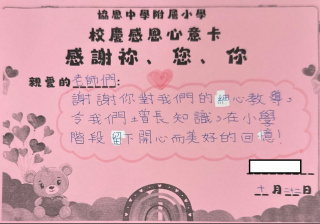 協恩中學附屬小學
校慶感恩心意卡
感謝祢、您、你
親愛的老師們:
謝謝你對我們的細心教導,
令我們增長知識,在小學
階段留下開心而美好的回憶!
十一月二十三日